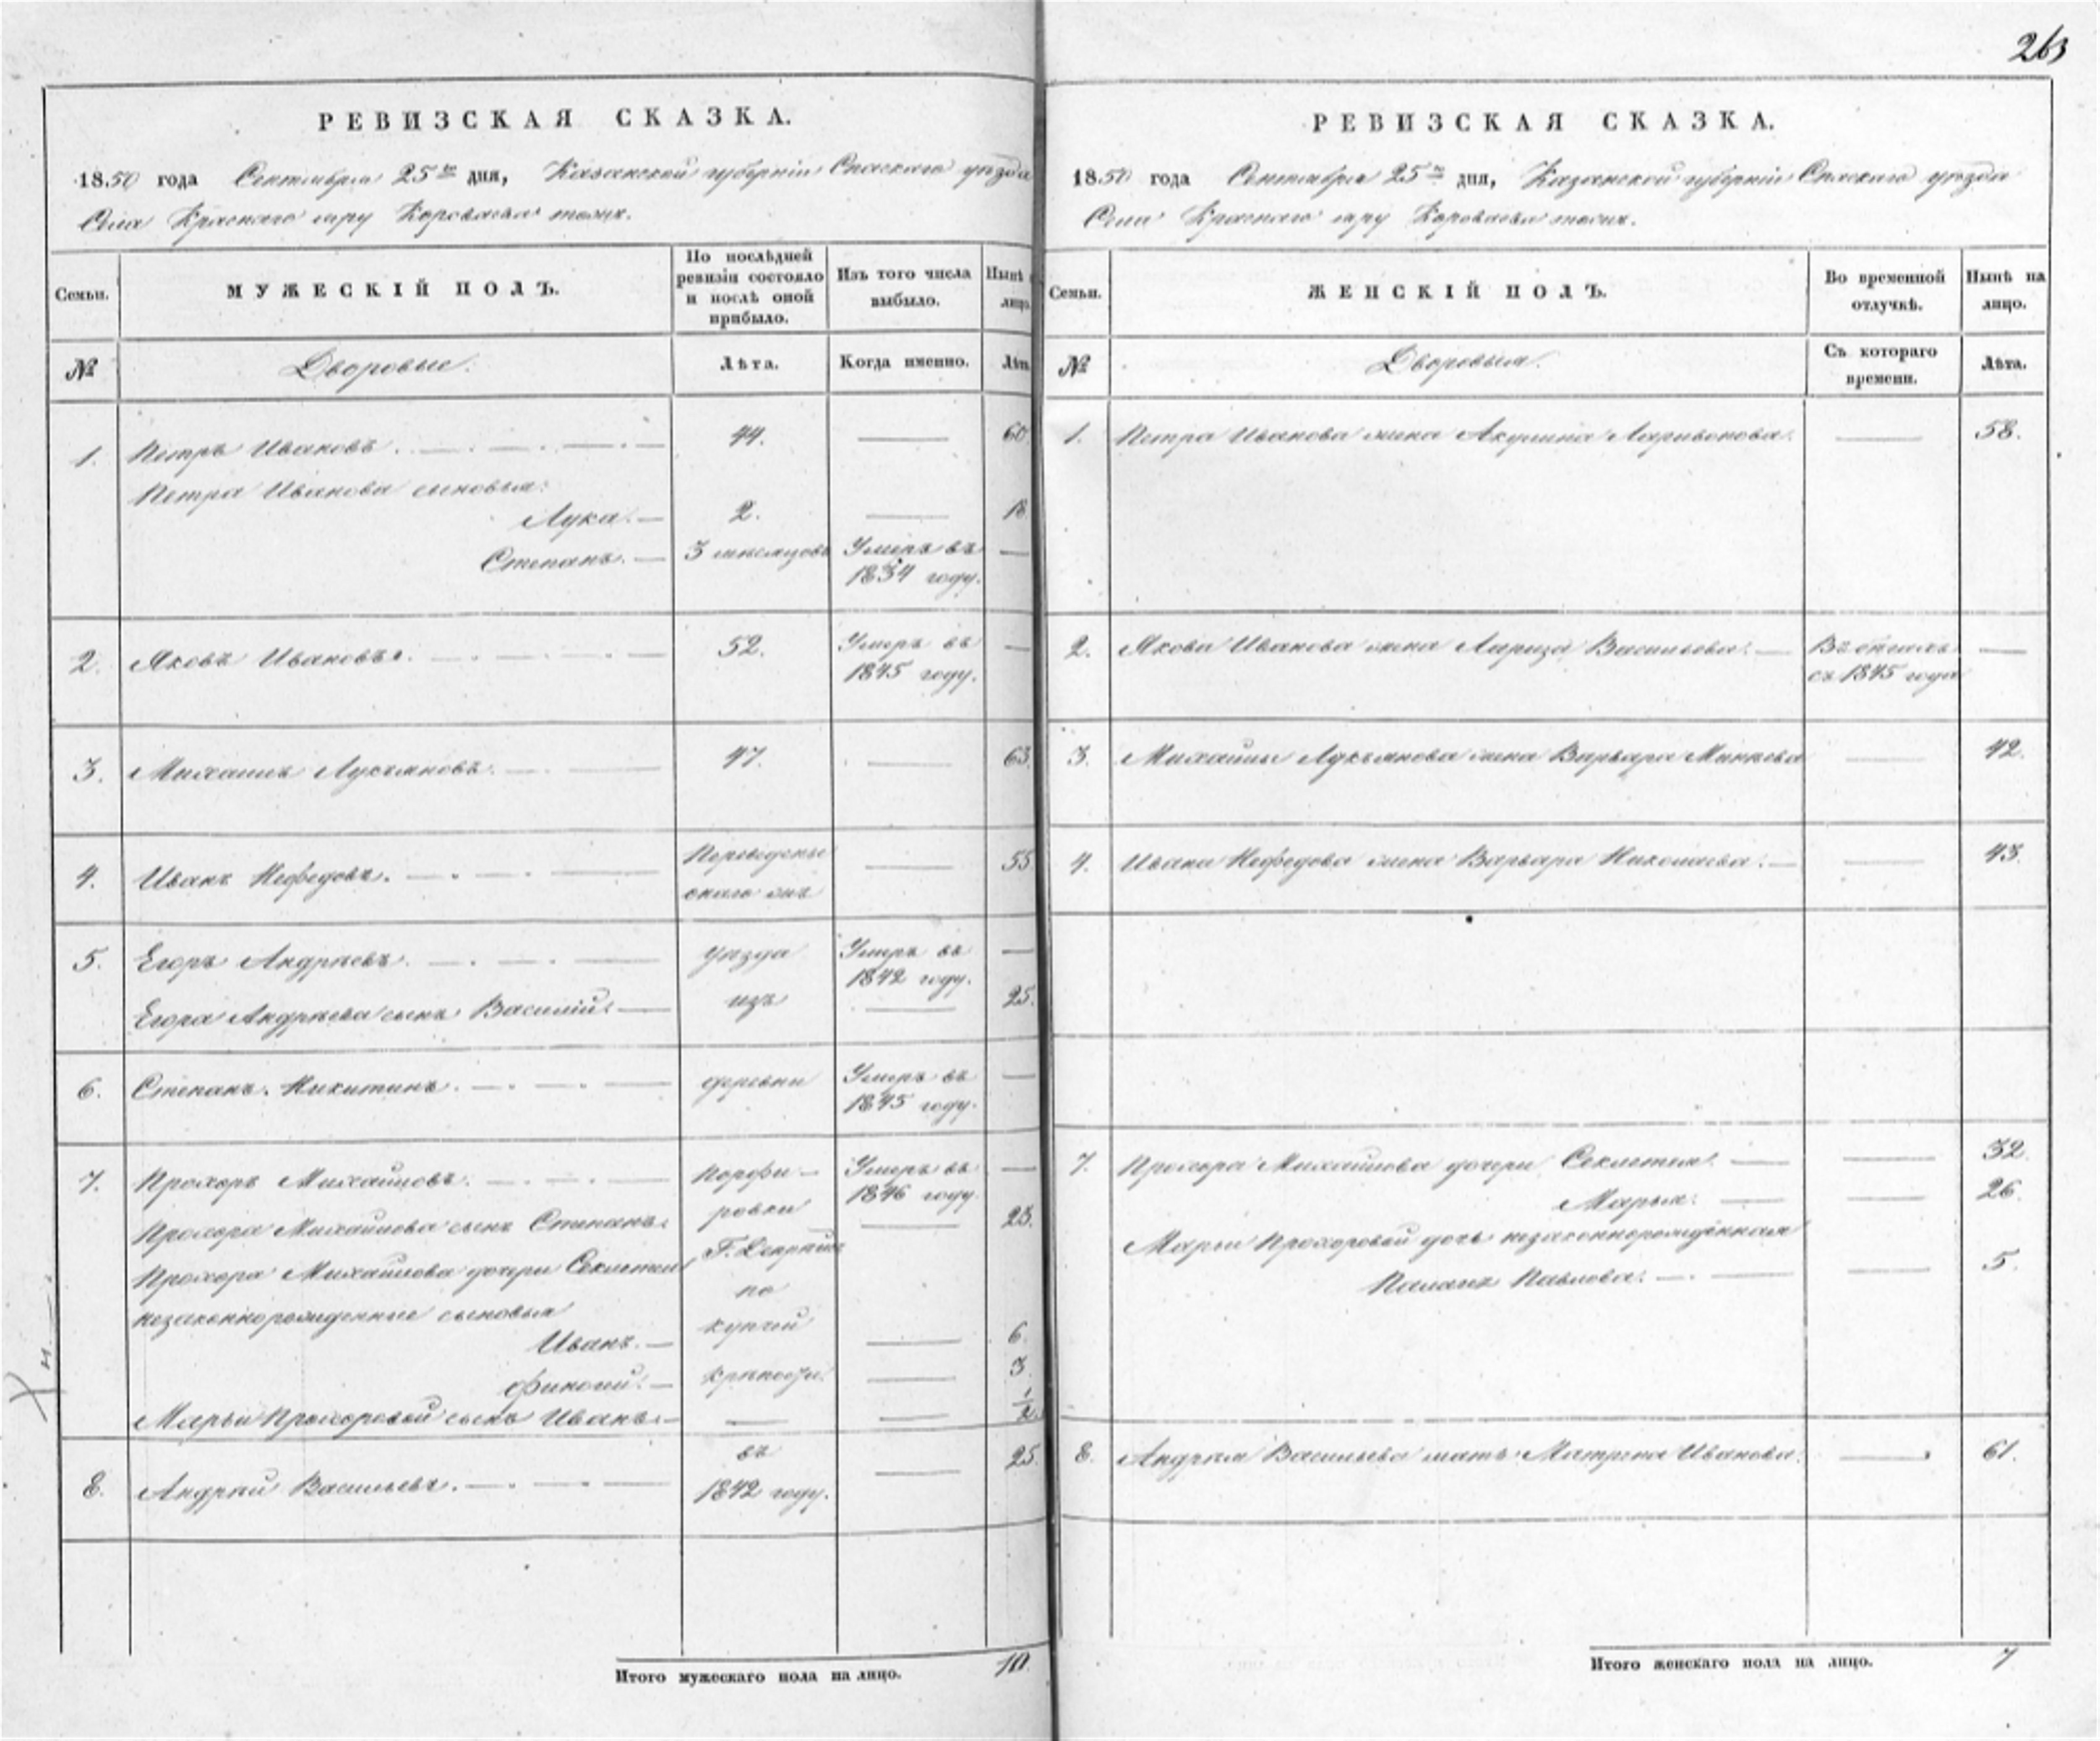 263
РЕВИЗСКАЯ СКАЗКА.
1850 года Сентября 25го дня, Казанской губернiи Спаскаго уѣзда
Села Краснаго яру Короваева тожъ.
Семьи.
МУЖЕСКIЙ ПОЛЪ.
По послѣдней ревизiи состояло и послѣ оной прибыло.
Изъ того числа выбыло.
Нынѣ лицо.
№
Дворовые.
Лѣта.
Когда именно.
Лѣта
1. Петръ Ивановъ. 44. — 60.
Петра Иванова сыновья:
Лука. — 2. — 18
Степанъ. — 3 мѣсяцовъ Умеръ въ 1834 году. —
2. Яковъ Ивановъ. 52. Умеръ въ 1845 году. —
3. Михаилъ Лукъяновъ. 47. — 63.
4. Иванъ Нефедовъ. Переведены — 55
5. Егоръ Андрѣевъ. уѣзда Умеръ въ 1842 году. —
Егора Андрѣева сынъ Василiй. — изъ — 25.
6. Степанъ Никитинъ. деревни Умеръ въ 1845 году. —
7. Прохоръ Михайловъ. Порфи- Умеръ въ 1846 году. —
Прохора Михайлова сынъ Степанъ. ровки — 23.
Прохора Михайлова дочери Секлетеи
по
незаконнорожденные сыновья купчей
Иванъ. — — 6.
Финогий. — крѣпости. — 3
Марьи Прохоровой сынъ Иванъ. — — — 1/2.
8. Андрей Васильевъ. въ 1842 году. — 25.
Итого мужескаго пола на лицо. 10.
РЕВИЗСКАЯ СКАЗКА.
1850 года Сентября 25го дня, Казанской губернiи Спаскаго уѣзда
Села Краснаго яру Короваева тожъ.
Семьи.
ЖЕНСКIЙ ПОЛЪ.
Во временной отлучкѣ.
Нынѣ на лицо.
№
Дворовыя.
Съ котораго времени.
Лѣта.
1. Петра Иванова жена Акулина Ларивонова. — 58.
2. Якова Иванова жена Васильева. — съ 1845 года —
3. Михайлы Лукъянова жена Варвара Минаева — 42.
4. Ивана Нефедова жена Варвара Николаева. — — 43.
7. Прохора Михайлова дочери Секлетея. — — 32.
Марья. — — 26.
Марьи Прохоровой дочь незаконнорожденная
Павлова. — — 5.
8. Андрея Васильева мать Матрена Иванова. — 61.
Итого женскаго пола на лицо. 7